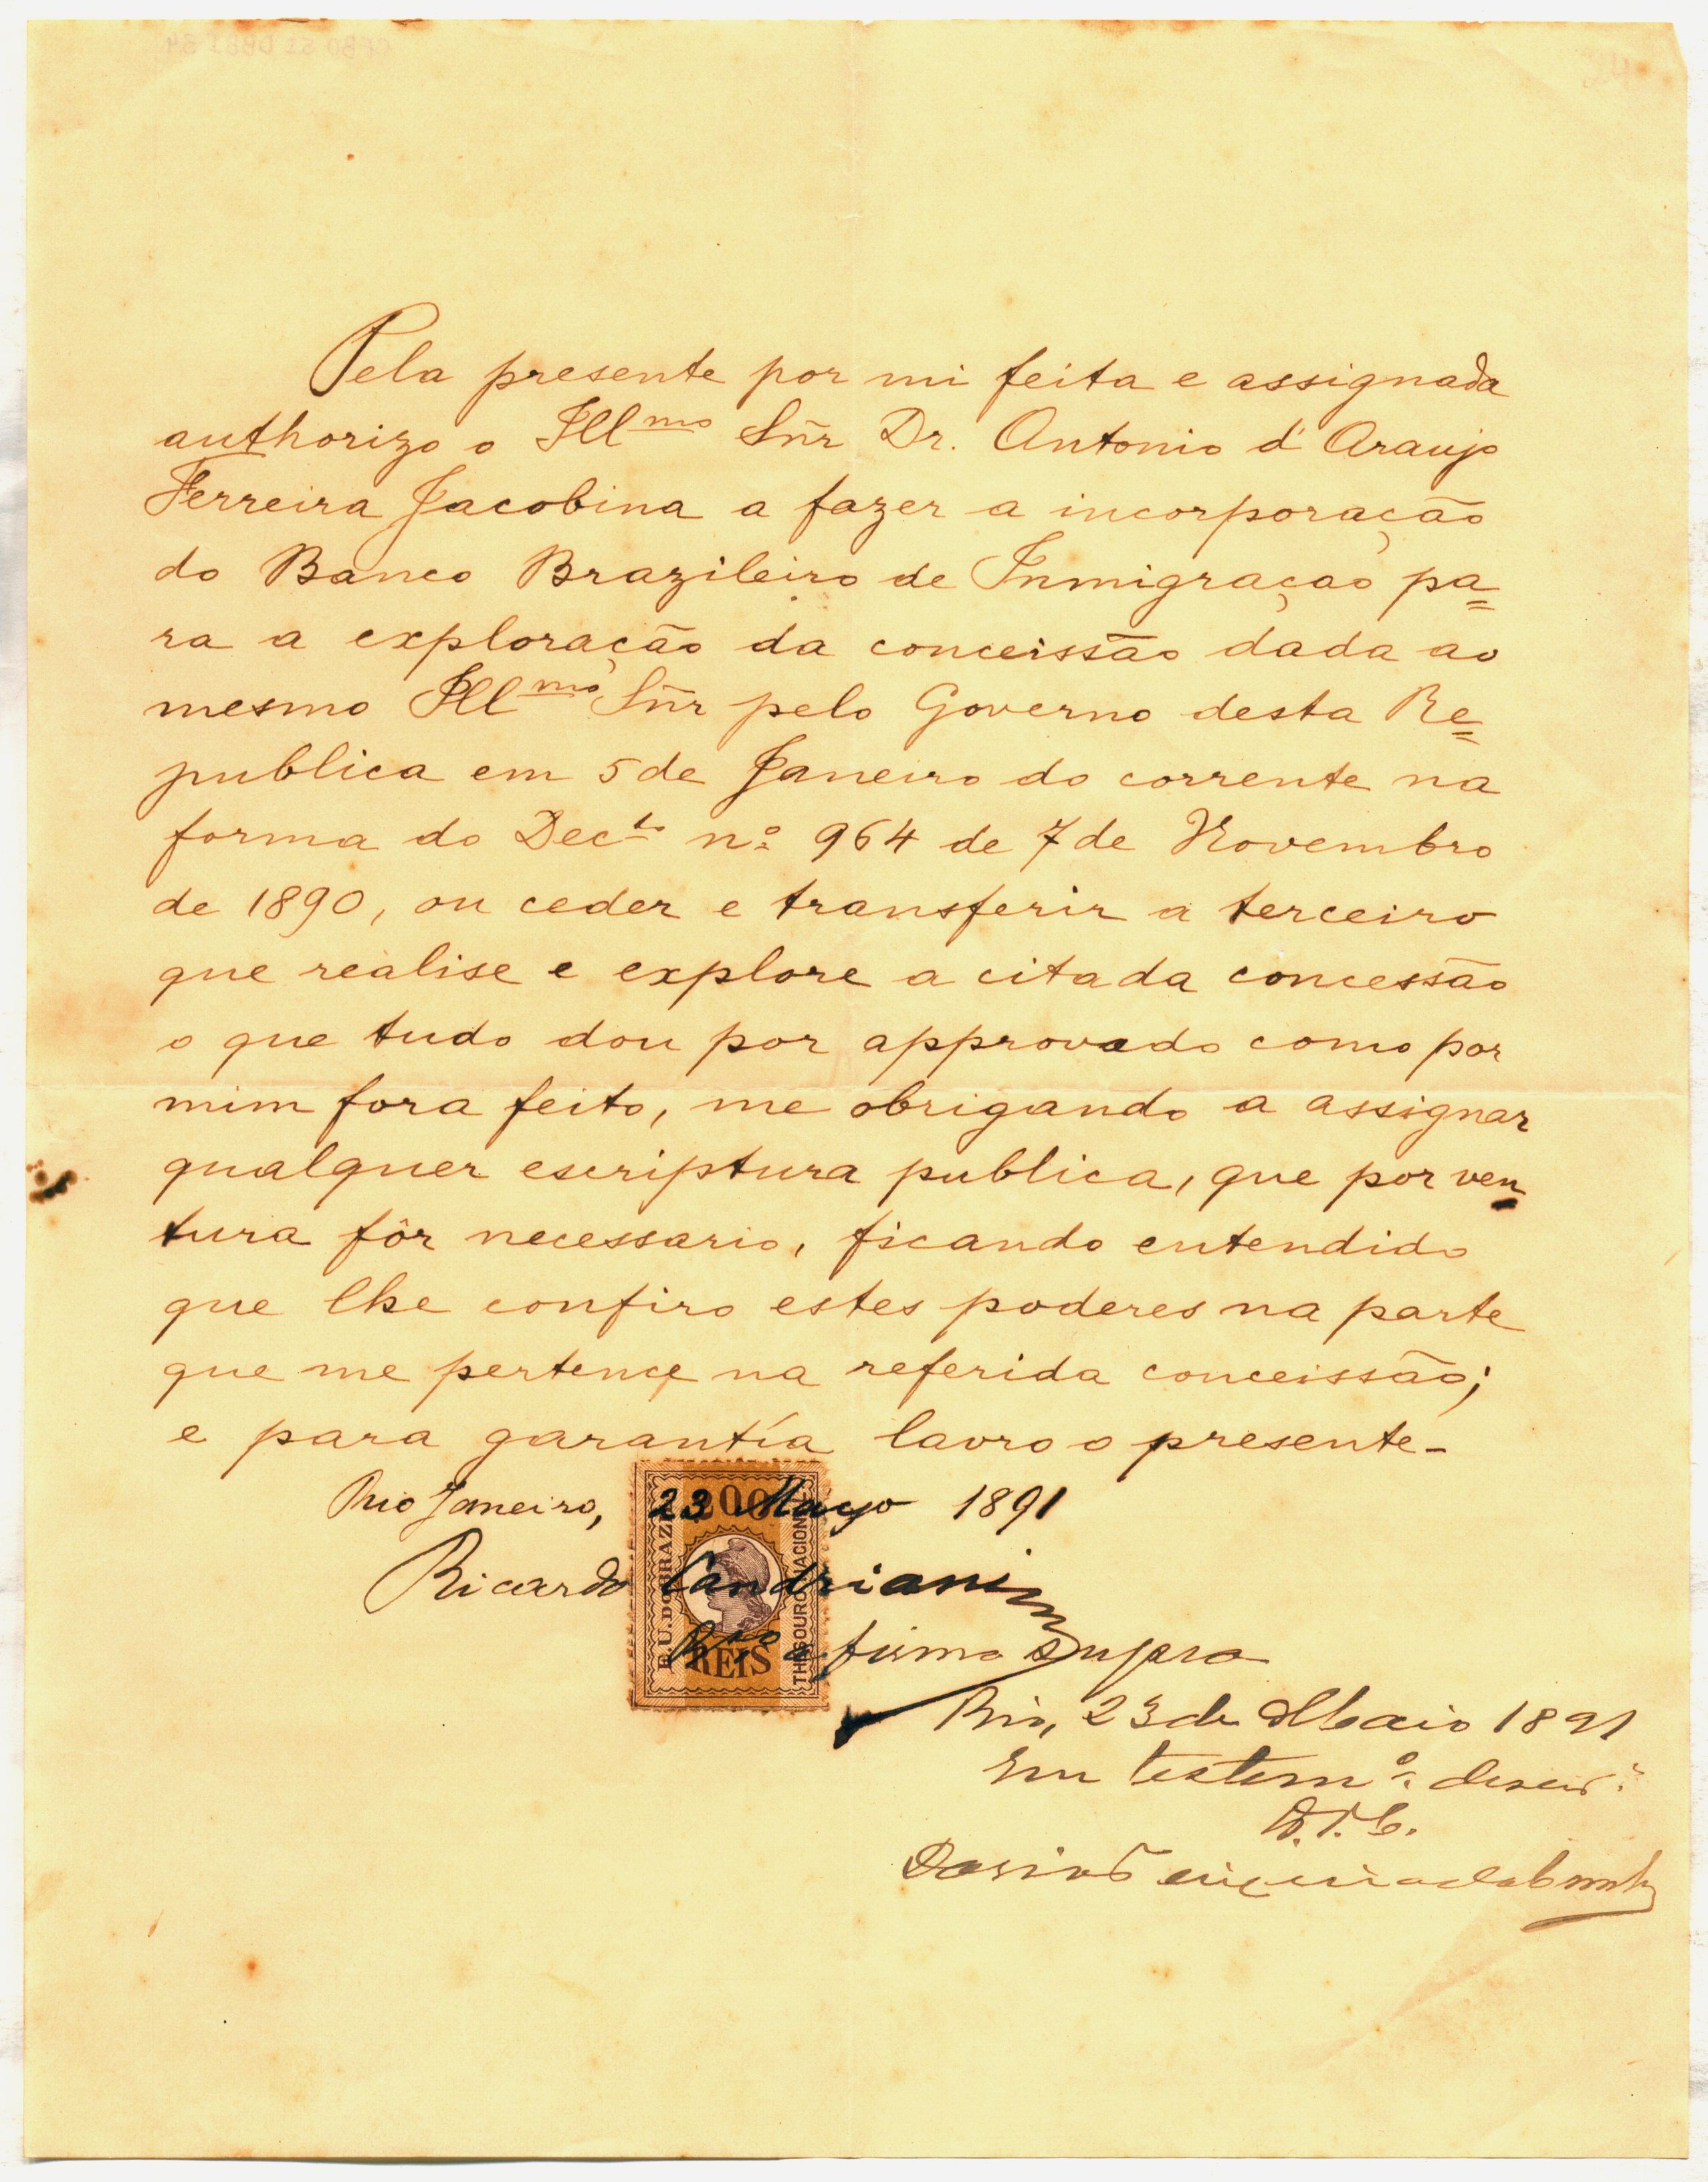 Pela presente por mi feita e assignada
authorizo o Illmo Sñr Dr. Antonio d'Araujo
Ferreira Jacobina a fazer a incorporação
do Banco Brazileiro de Inmigraçao pa=
ra a exploração da conceissão dada ao
mesmo Illmo Sñr pelo Governo desta Re=
publica em 5 de Janeiro do corrente na
forma do Decto nº 964 de 7 de Novembro
de 1890, ou ceder e transferir a terceiro
que realise e explore a citada concessão
o que tudo dou por approvado como por
mim fora feito, me obrigando a assignar
qualquer escriptura publica, que por ven
tura fôr necessario, ficando entendido
que lhe confiro estes poderes na parte
que me pertence na referida conceissão;
e para garantía lavro o presente-
Rio Janeiro, 23 Mayo 1891
Ricardo Candriani
200
E.U.DO BRAZIL
THESOURO NACIONAL
REIS
a firma supra
Rio, 23 de Maio 1891
Em testemº